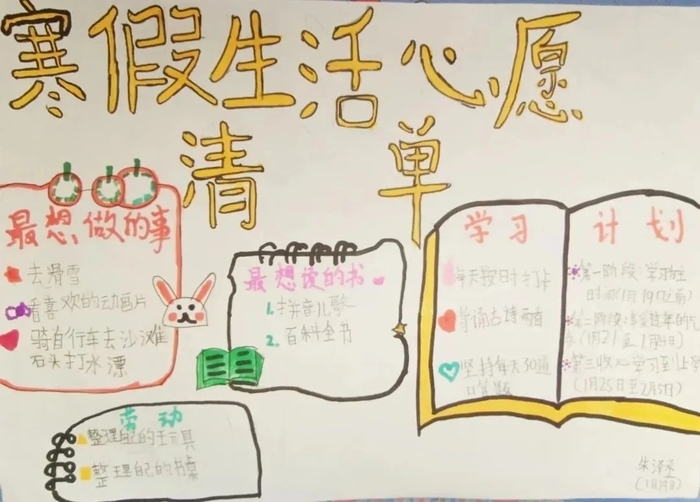 寒假生活心愿
清单
最想做的事
去滑雪
看喜欢的动画片
骑自行车去沙滩
石头打水漂
最想读的书
1. 拼音儿歌
2. 百科全书
劳动
整理自己的玩具
整理自己的书桌
学习
每天按时打卡
背诵古诗两首
坚持每天30道
口算题
计划
第一阶段:学习
第二阶段:
第三收心学习至上学
(1月25日至2月5日)